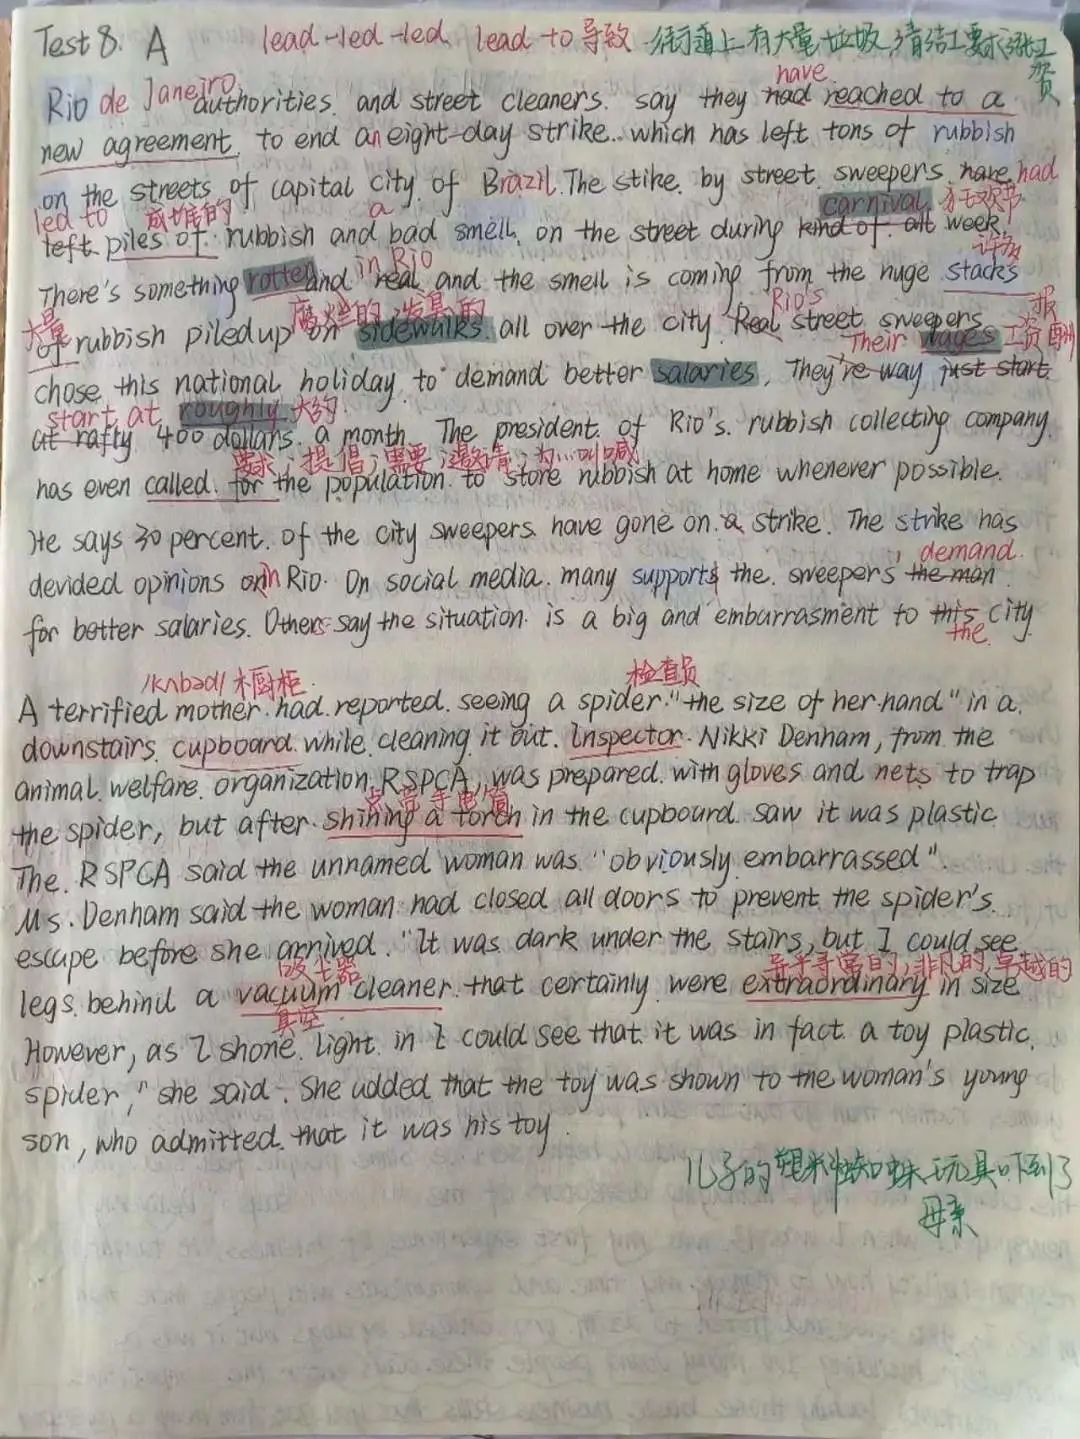 Test 8. A lead-led-led lead to 导致 街道上有大量垃圾,清洁工要求涨工资
have
Rio de Janeiro authorities and street cleaners. say they had reached to a
new agreement to end an eight-day strike.. which has left tons of rubbish
on the streets of capital city of Brazil. The stike. by street sweepers have had
led to 成堆的 a carnival 狂欢节
left piles of rubbish and bad smell. on the street during kind of all week.
in Rio 许多
There's something rotten and real and the smell is coming from the huge stacks
大量 腐烂的,发臭的 Rio's 报酬
of rubbish piled up on sidewalks all over the city. Real street sweepers
Their wages 工资
chose this national holiday to demand better salaries, They're way just start
start at roughly 大约
at rafty 400 dollars. a month. The president of Rio's. rubbish collecting company
要求;提倡;需要;邀请;为…叫喊
has even called for the population to store rubbish at home whenever possible.
He says 30 percent. of the city sweepers have gone on a strike. The strike has
demand
devided opinions on in Rio. On social media. many supports the. sweepers' the man
for better salaries. Others say the situation is a big and embarrasment to this city
the
/kʌbəd/ 橱柜 检查员
A terrified mother had reported seeing a spider "the size of her hand" in a
downstairs cupboard while cleaning it out. Inspector Nikki Denham, from the
animal welfare organization RSPCA, was prepared with gloves and nets to trap
the spider, but after shining a torch in the cupboard saw it was plastic
The RSPCA said the unnamed woman was "obviously embarrassed".
Ms. Denham said the woman had closed all doors to prevent the spider's
escape before she arrived. "It was dark under the stairs, but I could see
吸尘器 异乎寻常的,非凡的,卓越的
legs behind a vacuum cleaner that certainly were extraordinary in size
真空
However, as I shone light in I could see that it was in fact a toy plastic
spider," she said. She added that the toy was shown to the woman's young
son, who admitted that it was his toy.
儿子的塑料蜘蛛玩具吓到了
母亲